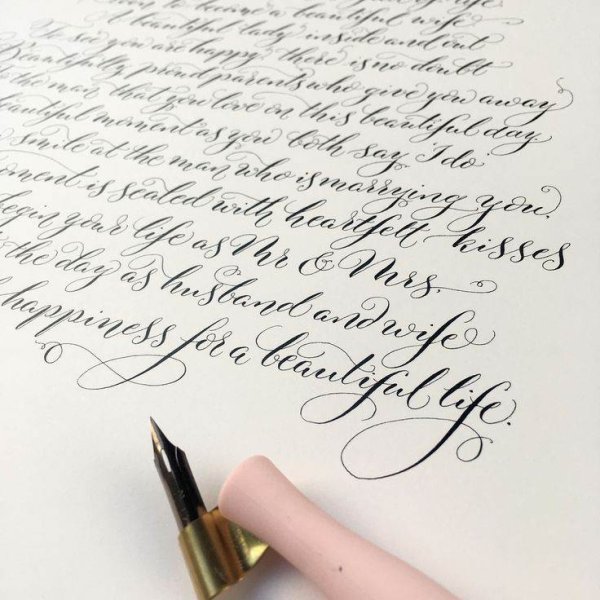 soon to become a beautiful wife
A beautiful lady inside and out
To see you are happy, there is no doubt
Beautifully proud parents who give you away
the man that you love on this beautiful day.
beautiful moment as you both say I do
smile at the man who is marrying you.
moment is sealed with heartfelt kisses
begin your life as Mr & Mrs.
the day as husband and wife
happiness for a beautiful life.